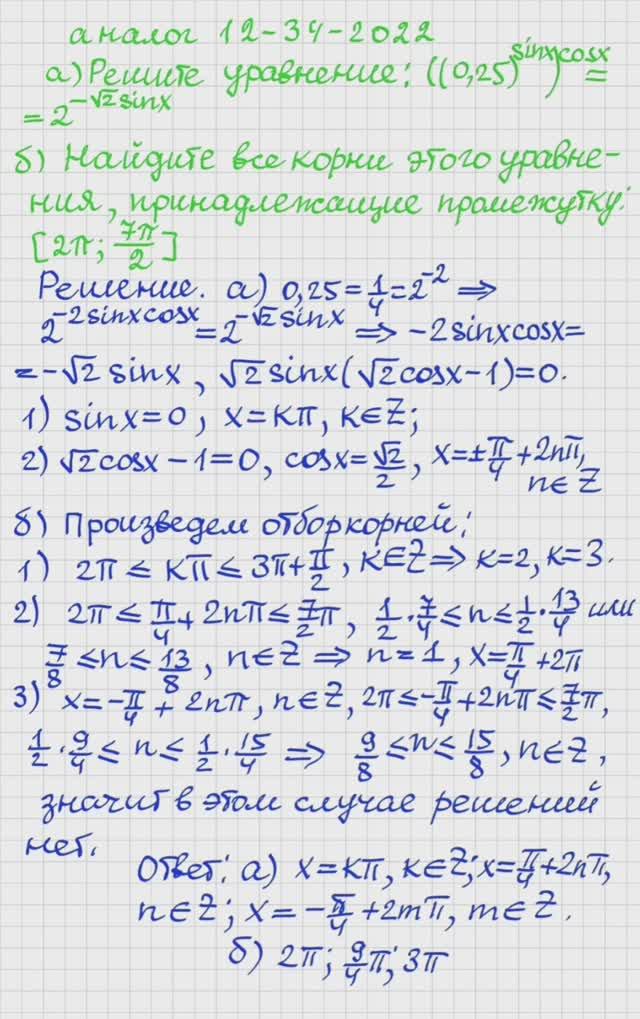 аналог 12-34-2022
а) Решите уравнение: ((0,25)^sinx)^cosx =
= 2^-√2 sinx
б) Найдите все корни этого уравне-
ния, принадлежащие промежутку:
[2π; 7π/2]
Решение. а) 0,25 = 1/4 = 2^-2 ⇒
2^-2sinxcosx = 2^-√2 sinx ⇒ -2sinxcosx =
= -√2 sinx, √2 sinx(√2cosx-1)=0.
1) sinx=0, x=kπ, k∈Z;
2) √2cosx-1=0, cosx=√2/2, x=±π/4+2nπ,
n∈Z
б) Произведем отбор корней:
1) 2π ≤ kπ ≤ 3π+π/2, k∈Z ⇒ k=2, k=3.
2) 2π ≤ π/4+2nπ ≤ 7/2π, 1/2·7/4 ≤ n ≤ 1/2·13/4 или
7/8 ≤ n ≤ 13/8, n∈Z ⇒ n=1, x=π/4+2π
3) x=-π/4+2nπ, n∈Z, 2π ≤ -π/4+2nπ ≤ 7/2π,
1/2·9/4 ≤ n ≤ 1/2·15/4 ⇒ 9/8 ≤ n ≤ 15/8, n∈Z,
значит в этом случае решений
нет.
Ответ: а) x=kπ, k∈Z; x=π/4+2nπ,
n∈Z; x=-π/4+2mπ, m∈Z.
б) 2π; 9/4π; 3π